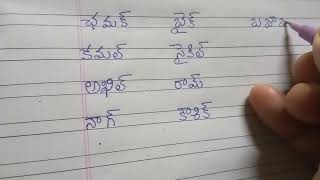 ఛమక్ బైక్
కమల్ సైకిల్
అఖిల్ రామ్
నాగ్ కౌశిక్